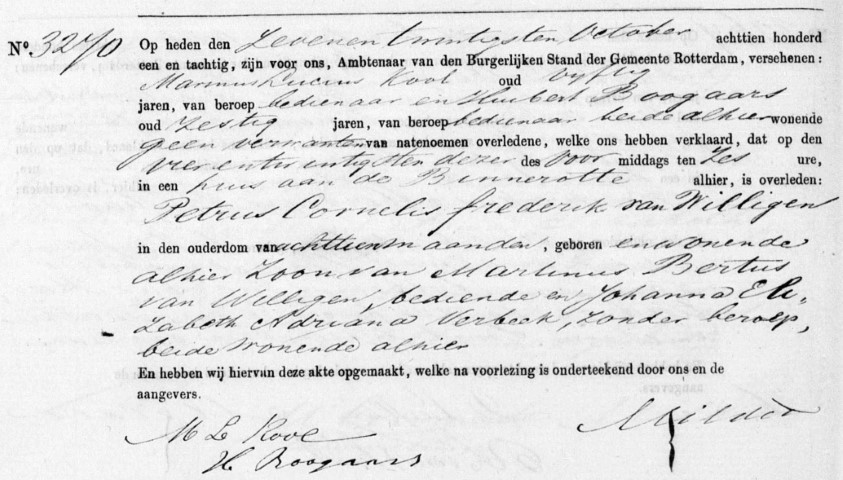 N° 3270 Op heden den Zevenentwintigsten October achttien honderd
een en tachtig, zijn voor ons, Ambtenaar van den Burgerlijken Stand der Gemeente Rotterdam, verschenen:
Marinus Lucius Kool oud vijftig
jaren, van beroep bedienaar en Huibert Boogaars
oud Zestig jaren, van beroep bedienaar beide alhier wonende
geen verwanten van natenoemen overledene, welke ons hebben verklaard, dat op den
vierentwintigsten dezer des voor middags ten Zes ure,
in een huis aan de Binnerotte alhier, is overleden:
Petrus Cornelis frederik van Willigen
in den ouderdom van achttien maanden, geboren en wonende
alhier Zoon van Martinus Bertus
van Willigen, bediende en Johanna Eli-
zabeth Adriana Verbeek, zonder beroep,
beide wonende alhier
En hebben wij hiervan deze akte opgemaakt, welke na voorlezing is onderteekend door ons en de
aangevers.
M L Kool
H Boogaars